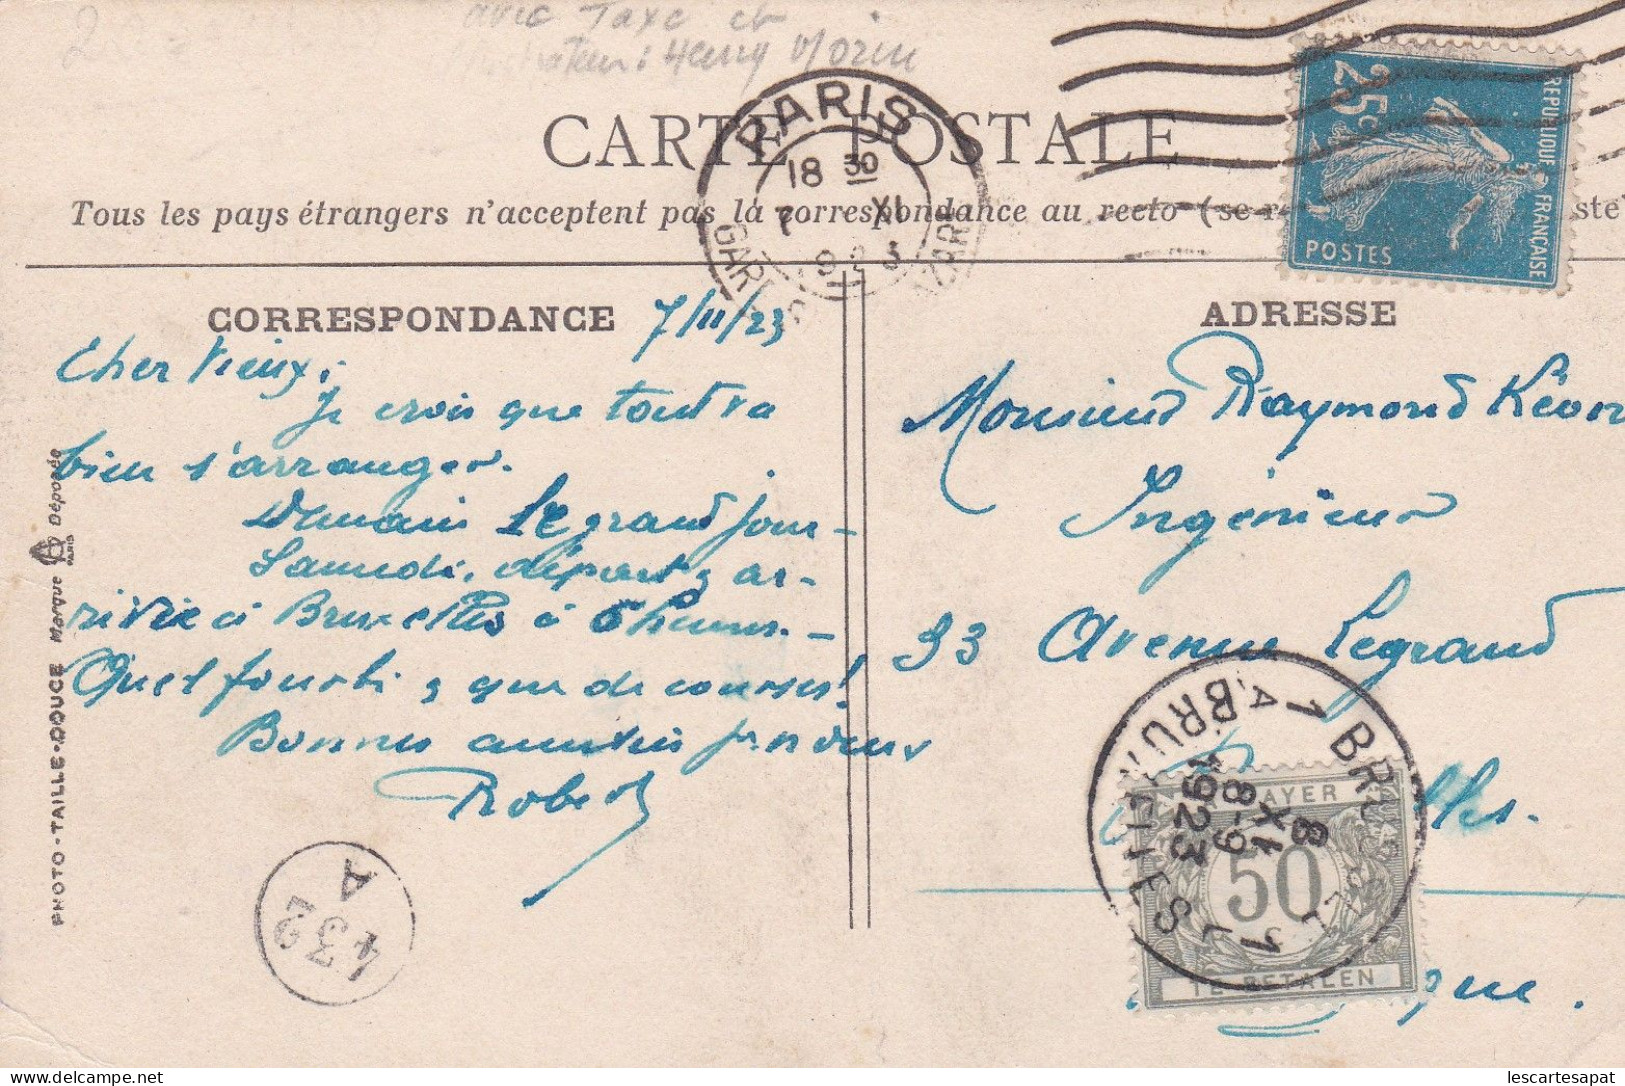 avec Taxe et
Illustrateur : Henry Morin
CARTE POSTALE
Tous les pays étrangers n'acceptent pas la correspondance au recto (se r
ste)
PARIS
18 30
7 XI
923
GARE
AZARE
REPUBLIQUE FRANÇAISE
25c
POSTES
CORRESPONDANCE
7/11/23
Cher Vieux,
Je crois que tout va
bien s'arranger.
Demain le grand jour –
Samedi, départ, ar-
rivée à Bruxelles à 6 heures. –
Quel fourbi, que de courses!
Bonnes amitiés pr vous
Robert
ADRESSE
Monsieur Raymond
Ingénieur
33 Avenue Legrand
lles.
gique.
1 BRUXELLES 1
BRUSSEL
A
8
XI
8-9
1923
A PAYER
50
TE BETALEN
432
A
PHOTO-TAILLE-DOUCE Marque Déposée
PARIS
lescartesapat